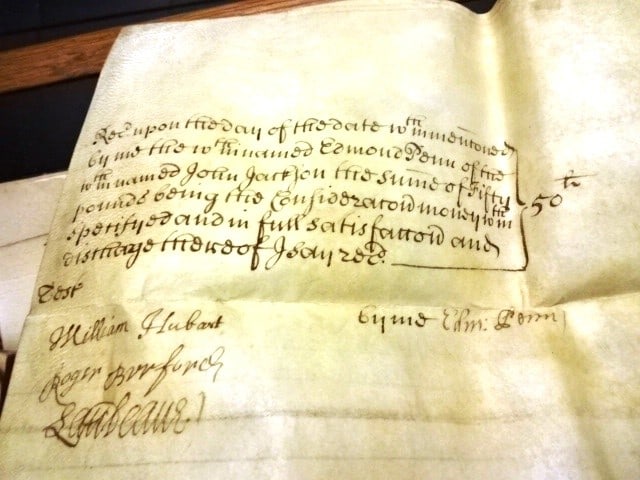 Recd upon the day of the date wthin mentioned
by me the wthin named Edmond Penn of the
wthin named John Jackson the sume of fifty
pounds being the Consideracon money wthin
specified and in full satisfaccon and
discharge thereof I say recd.
50 li
Test
William Hubart
by me Edm: Penn
Roger